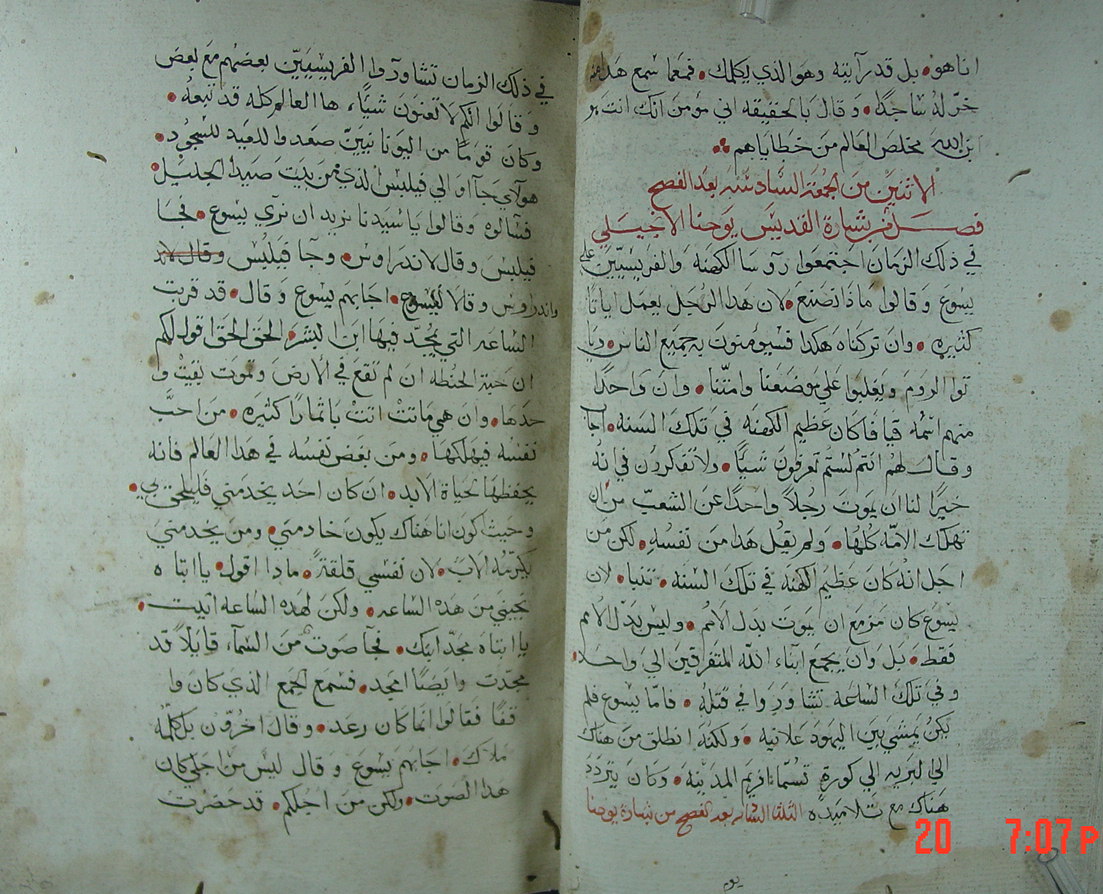 انا هو بل قد رآيته وهو الذي يكلمك فمعما سمع هدا منه
خرّ له ساجدًا وقال بالحقيقه اني مؤمن انك انت هو
ابن الله مخلص العالم من خطاياهم
الاثنين من الجمعة السادسه بعد الفصح
فصل من بشارة القديس يوحنا الانجيلي
في ذلك الزمان اجتمعوا روسا الكهنه والفريسيّين على
يسوع وقالوا ماذا نصنع لان هذا الرجل يعمل اياتا
كثيره وان تركناه هكدا فسيومنون به جميع الناس ويا
توا الروم ويغلبوا علي موضعنا وامّتنا وان واحدًا
منهم اسمه قيافا كان عظيم الكهنه في تلك السنه اجا
وقال لهم انتم لستم تعرفون شيًا ولا تفكرون في انه
خيرًا لنا ان يموت رجلاً واحدًا عن الشعب من ان
تهلك الامّه كلها ولم يقل هدا من نفسه لكن من
اجل انه كان عظيم الكهنه في تلك السنه تنبا لان
يسوع كان مزمع ان يموت بدل الامم وليس بدل الامم
فقط بل وان يجمع ابناء الله المتفرقين الي واحد
وفي تلك الساعه تشاوروا في قتله فامّا يسوع فلم
يكن يمشي بين اليهود علانيه ولكنه انطلق من هناك
الي البريه الي كورة تسما افريم المدينه وكان يتردد
هناك مع تلاميده الثلثا السادسه بعد الفصح من بشارة يوحنا
يوم
في ذلك الزمان تشاوروا الفريسيّين بعضهم مع بعض
وقالوا انكم لا تغنون شيًا ها العالم كله قد تبعه
وكان قومًا من اليونانيين صعدوا للعيد للسجود
هولآي جآاوا الي فيلبس الذي من بيت صيدا الجليل
فسالوه وقالوا يا سيدنا نريد ان نري يسوع فجا
فيلبس وقال لاندراوس وجا فيلبس وقال لاند
واندراوس وقالا ليسوع اجابهم يسوع وقال قد قربت
الساعه التي يمجّد فيها ابن البشر الحق الحق اقول لكم
ان حبة الحنطه ان لم تقع في الارض وتموت بقيت و
حدها وان هي ماتت اتت باثمارًا كثيره من احبّ
نفسه فيهلكها ومن بغض نفسه في هدا العالم فانه
يحفظها لحياة الابد ان كان احد يخدمني فليلحق بي
وحيث اكون انا هناك يكون خادمي ومن يخدمني
يكرّمه الاب لان نفسي قلقةً مادا اقول يا ابتاه
نجيني من هده الساعه ولكن لهده الساعه اتيت
يا ابتاه مجّد ابنك فجآ صوت من السمآء قايلاً قد
مجّدت وايضًا امجد فسمع الجمع الذي كان وا
قفًا فقالوا انما كان رعد وقال اخرون بل كلمه
ملاك اجابهم يسوع وقال ليس من اجلي كان
هدا الصوت ولكن من اجلكم قد حضرت